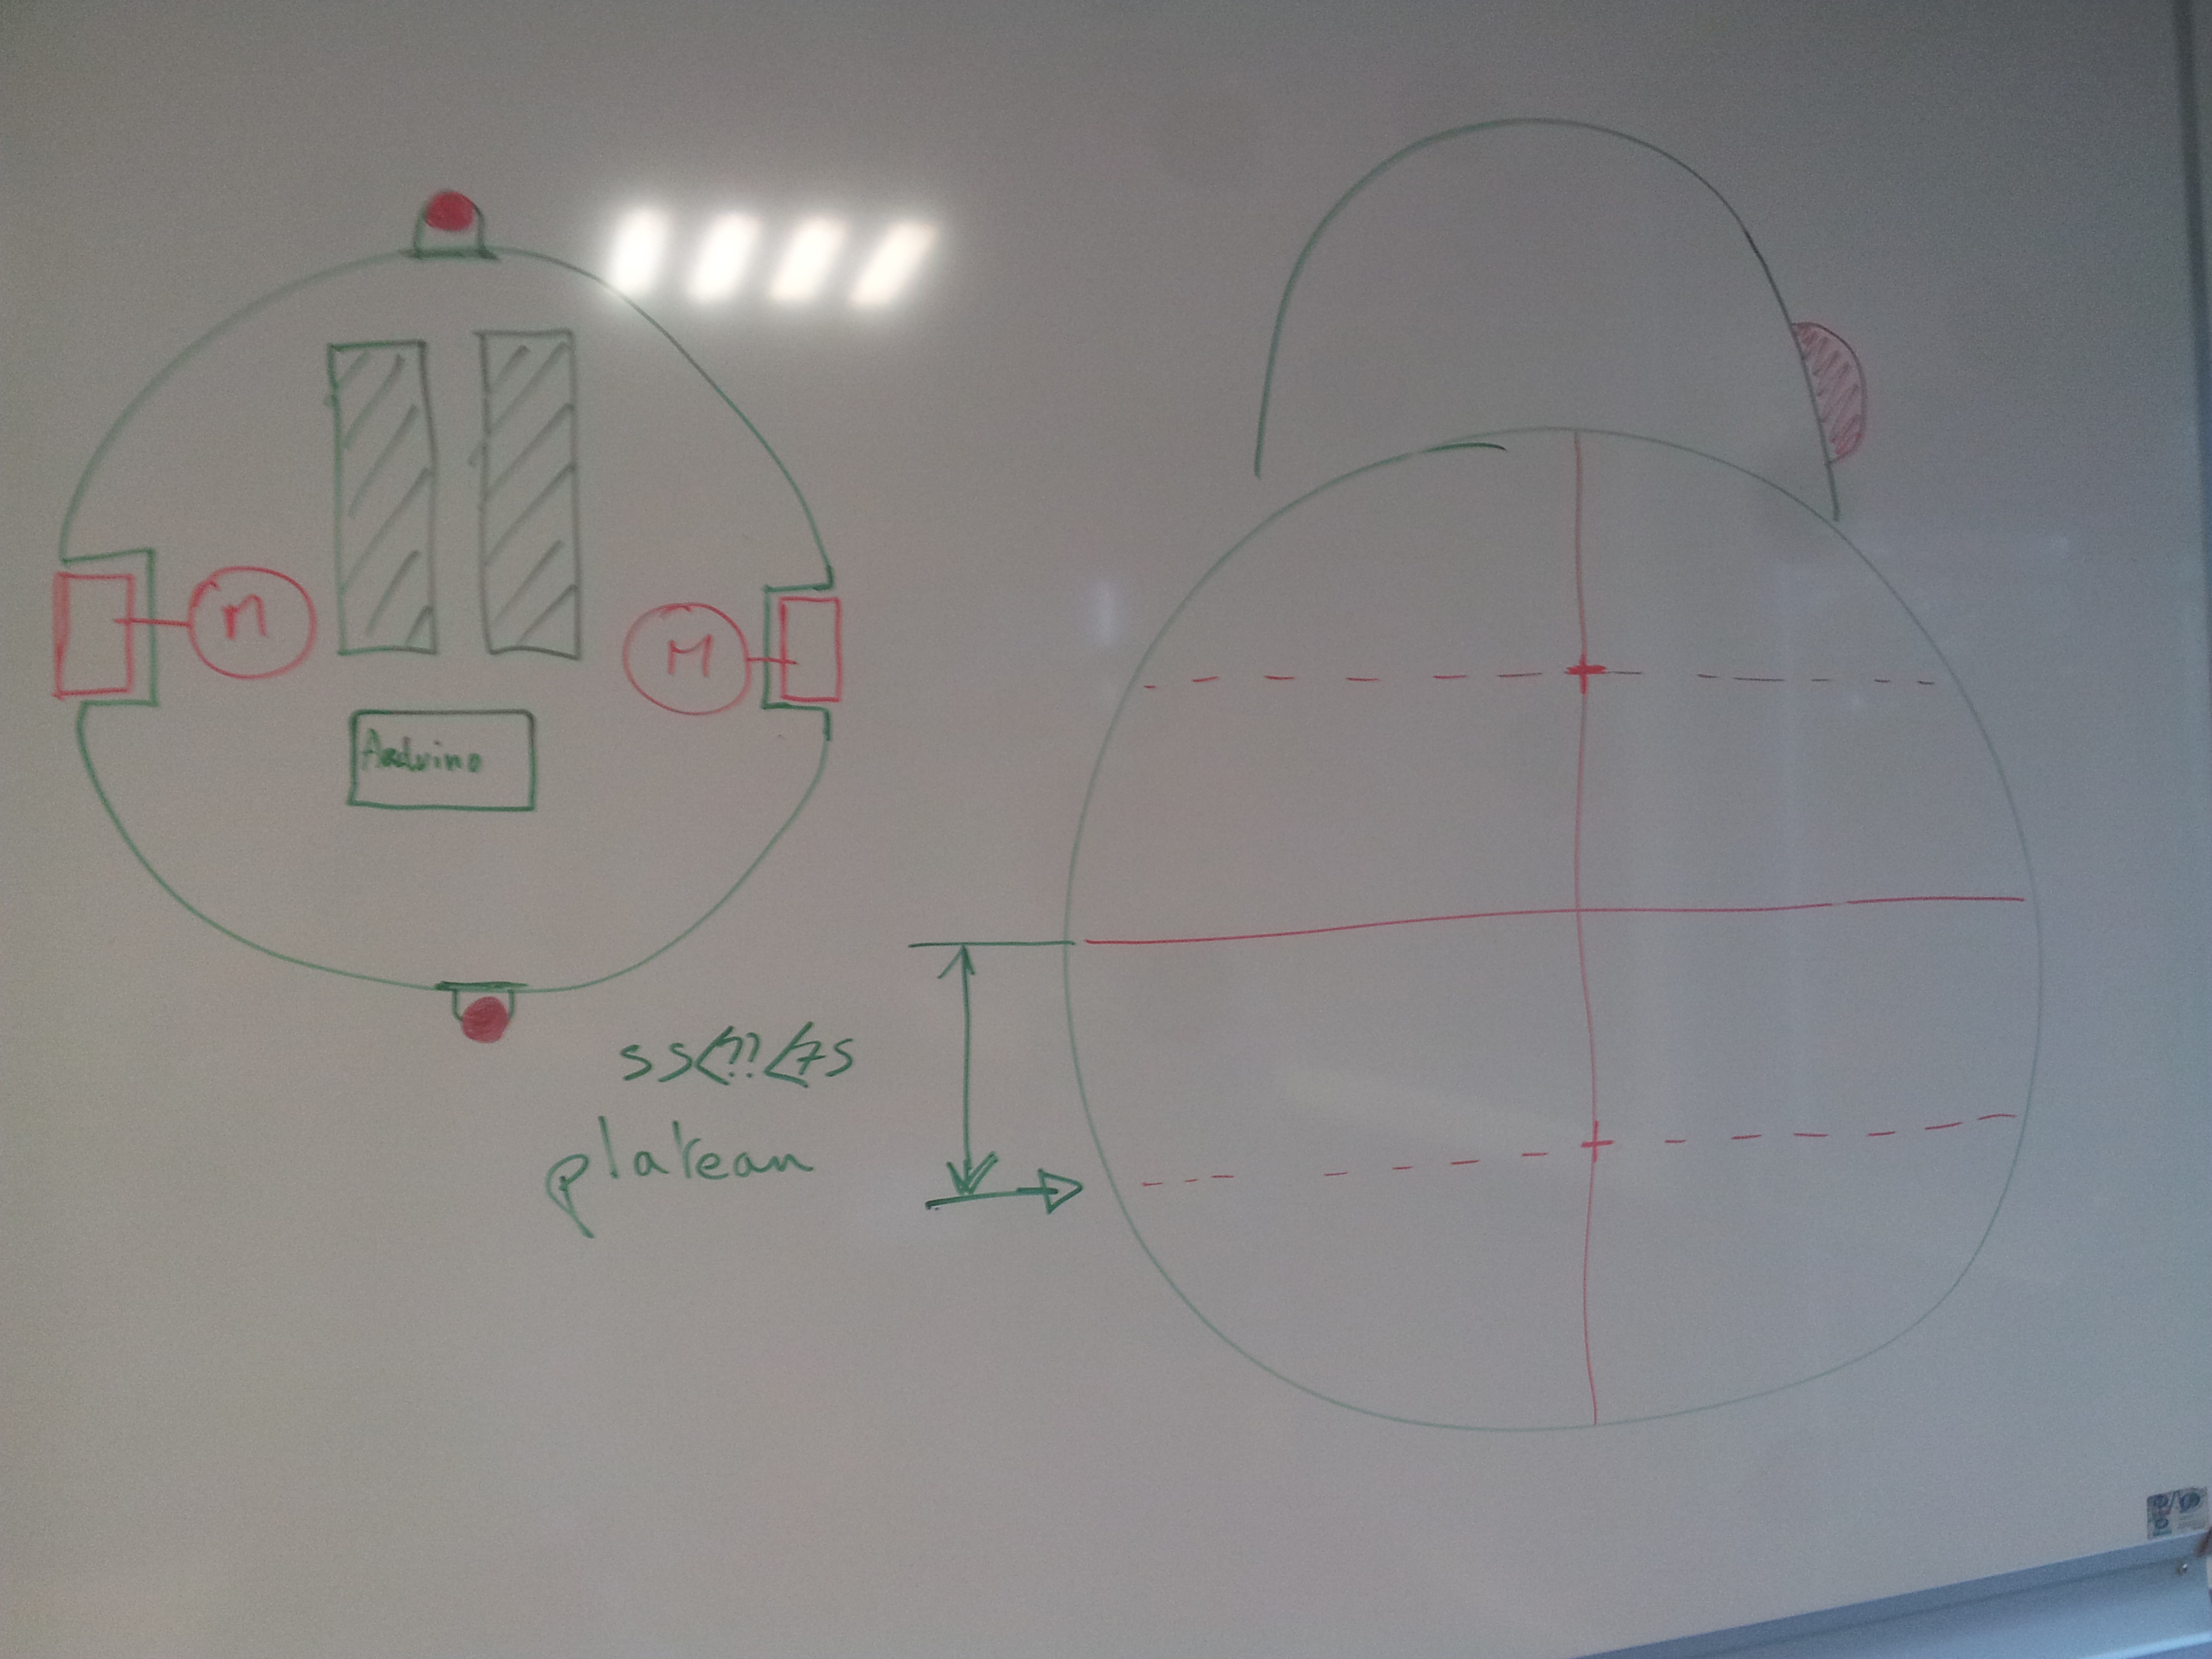 M
M
Arduino
55<??<75
plateau